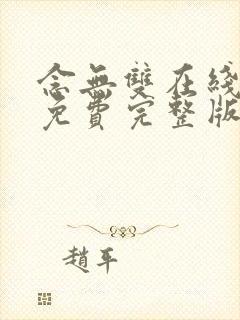 念無雙在綫
免費完整版
趙平